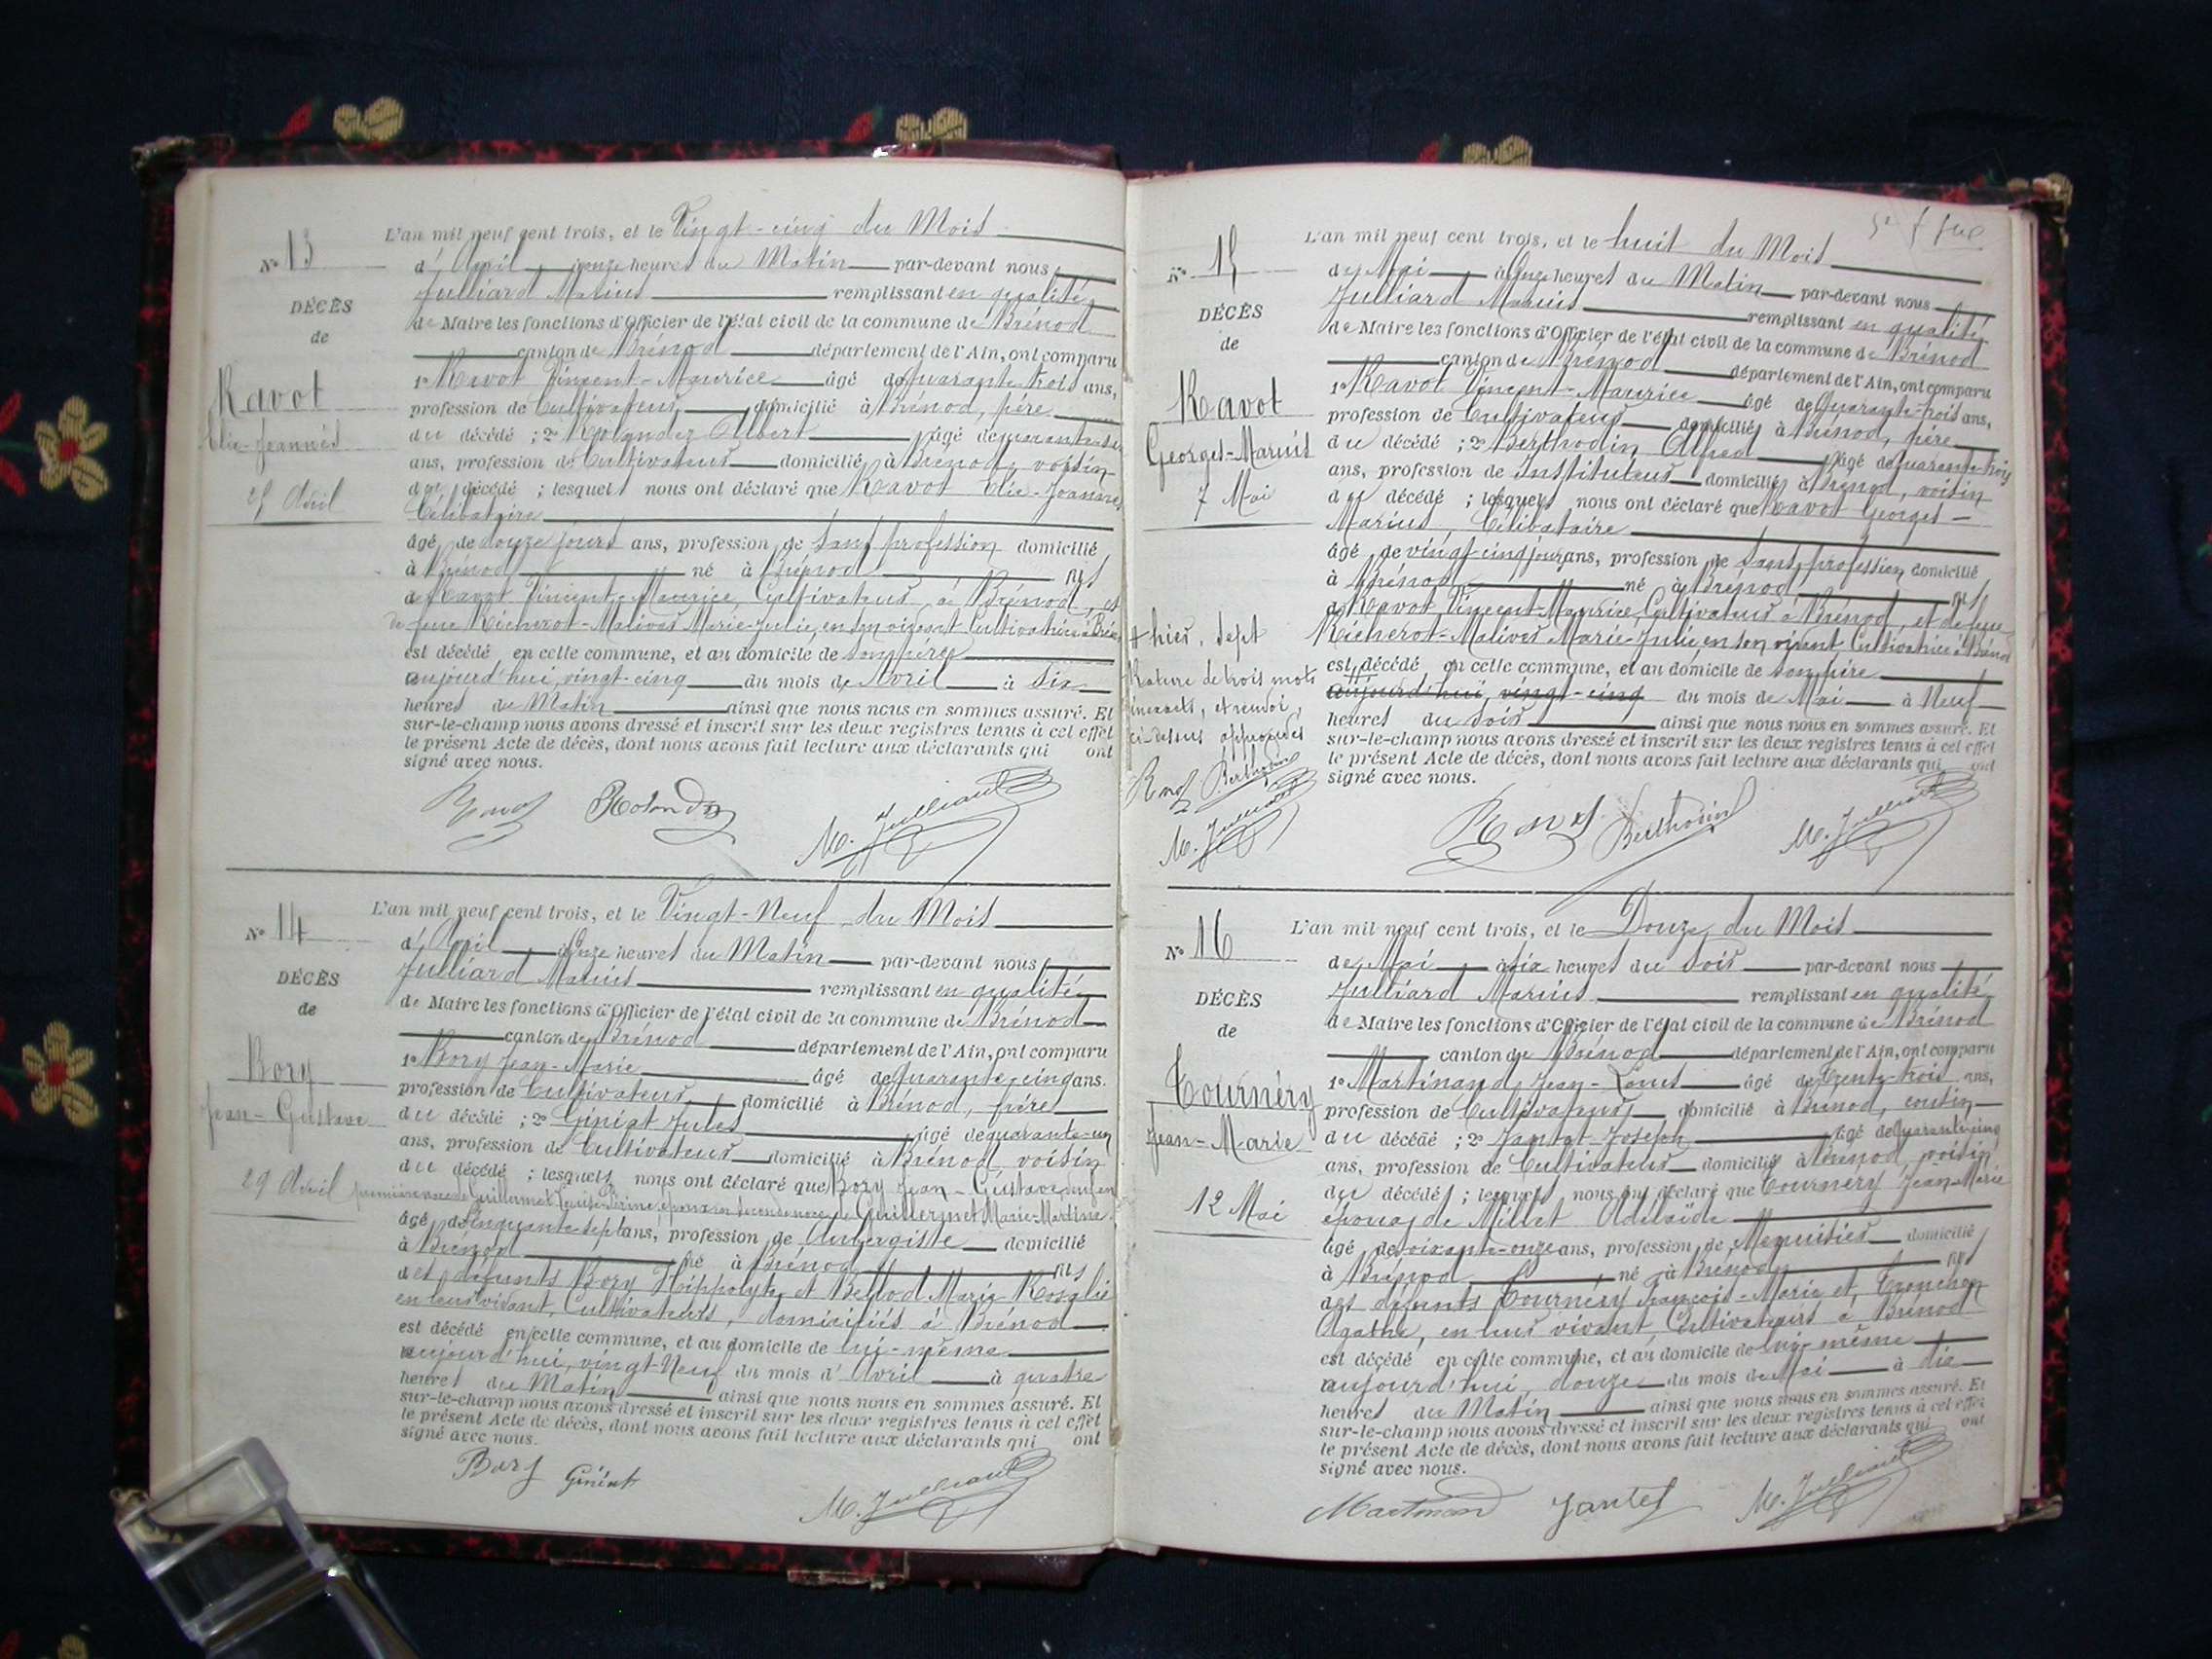 L'an mil neuf cent trois, et le Vingt-cinq du Mois
N° 13
d'Avril à onze heures du Matin par-devant nous
Julliard Marius remplissant en qualité
DÉCÈS
de Maire les fonctions d'Officier de l'état civil de la commune de Brénod
de
canton de Brénod département de l'Ain, ont comparu
1° Ravot Vincent-Maurice âgé de quarante-trois ans,
Ravot
profession de Cultivateur domicilié à Brénod, père
Elie-Joannès
du décédé ; 2° Rolandez Albert âgé de quarante
ans, profession de Cultivateur domicilié à Brénod, voisin
du décédé ; lesquels nous ont déclaré que Ravot Elie-Joannès
25 Avril
Célibataire
âgé de douze jours ans, profession de sans profession domicilié
à Brénod né à Brénod fils
de Ravot Vincent-Maurice, Cultivateur à Brénod, et
de feue Richerot-Malivas Marie-Julie, en son vivant Cultivatrice à Brénod
est décédé en cette commune, et au domicile de son père
aujourd'hui, vingt-cinq du mois de Avril à six
heures du Matin ainsi que nous nous en sommes assuré. Et
sur-le-champ nous avons dressé et inscrit sur les deux registres tenus à cet effet
le présent Acte de décès, dont nous avons fait lecture aux déclarants qui ont
signé avec nous.
Ravot Rolandez M. Julliard
L'an mil neuf cent trois, et le Vingt-Neuf du Mois
N° 14
d'Avril à Onze heures du Matin par-devant nous
Julliard Marius remplissant en qualité
DÉCÈS
de Maire les fonctions d'Officier de l'état civil de la commune de Brénod
de
canton de Brénod département de l'Ain, ont comparu
1° Bory Jean-Marie âgé de Quarante-cinq ans.
Bory
profession de Cultivateur domicilié à Brénod, frère
Jean-Gustave
du décédé ; 2° Giniat Jules âgé de quarante-un
ans, profession de Cultivateur domicilié à Brénod, voisin
du décédé ; lesquels nous ont déclaré que Bory Jean-Gustave veuf en
29 Avril
premières noces de Guillermet Louise époux en secondes noces de Guillermet Marie-Martine
âgé de Cinquante-sept ans, profession de Aubergiste domicilié
à Brénod né à Brénod fils
des défunts Bory Hippolyte et Bellod Marie-Rosalie
en leur vivant, Cultivateurs, domiciliés à Brénod
est décédé en cette commune, et au domicile de lui-même
aujourd'hui, vingt-Neuf du mois d'Avril à quatre
heures du Matin ainsi que nous nous en sommes assuré. Et
sur-le-champ nous avons dressé et inscrit sur les deux registres tenus à cet effet
le présent Acte de décès, dont nous avons fait lecture aux déclarants qui ont
signé avec nous.
Bory Giniat M. Julliard
L'an mil neuf cent trois, et le huit du Mois
N° 15
de Mai à Onze heures du Matin par-devant nous
Julliard Marius remplissant en qualité
DÉCÈS
de Maire les fonctions d'Officier de l'état civil de la commune de Brénod
de
canton de Brénod département de l'Ain, ont comparu
1° Ravot Vincent-Maurice âgé de Quarante-trois ans,
Ravot
profession de Cultivateur domicilié à Brénod, père
Georges-Marius
du décédé ; 2° Berthodin Alfred âgé de quarante-trois
ans, profession de Instituteur domicilié à Brénod, voisin
7 Mai
du décédé ; lesquels nous ont déclaré que Ravot Georges-
Marius, Célibataire
âgé de vingt-cinq jours ans, profession de sans profession domicilié
à Brénod né à Brénod fils
de Ravot Vincent-Maurice, Cultivateur à Brénod, et de feue
Richerot-Malivas Marie-Julie, en son vivant, Cultivatrice à Brénod
est décédé en cette commune, et au domicile de son père
aujourd'hui, vingt-cinq du mois de Mai à Neuf
heures du Soir ainsi que nous nous en sommes assuré. Et
sur-le-champ nous avons dressé et inscrit sur les deux registres tenus à cet effet
le présent Acte de décès, dont nous avons fait lecture aux déclarants qui ont
signé avec nous.
# hier, sept
Rature de trois mots
inexacts, et renvoi,
ci-dessus approuvés
Ravot Berthodin
M. Julliard
Ravot Berthodin M. Julliard
L'an mil neuf cent trois, et le Douze du Mois
N° 16
de Mai à six heures du Soir par-devant nous
Julliard Marius remplissant en qualité
DÉCÈS
de Maire les fonctions d'Officier de l'état civil de la commune de Brénod
de
canton de Brénod département de l'Ain, ont comparu
1° Martinand Jean-Louis âgé de Trente-trois ans,
Tournéry
profession de Cultivateur domicilié à Brénod, cousin
Jean-Marie
du décédé ; 2° Jantet Joseph âgé de quarante-cinq
ans, profession de Cultivateur domicilié à Brénod, voisin
12 Mai
du décédé ; lesquels nous ont déclaré que Tournéry Jean-Marie
époux de Millet Adelaïde
âgé de soixante-onze ans, profession de Menuisier domicilié
à Brénod né à Brénod fils
des défunts Tournéry François-Marie et Tronchon
Agathe, en leur vivant, Cultivateurs à Brénod
est décédé en cette commune, et au domicile de lui-même
aujourd'hui, douze du mois de Mai à dix
heures du Matin ainsi que nous nous en sommes assuré. Et
sur-le-champ nous avons dressé et inscrit sur les deux registres tenus à cet effet
le présent Acte de décès, dont nous avons fait lecture aux déclarants qui ont
signé avec nous.
Martinand Jantet M. Julliard